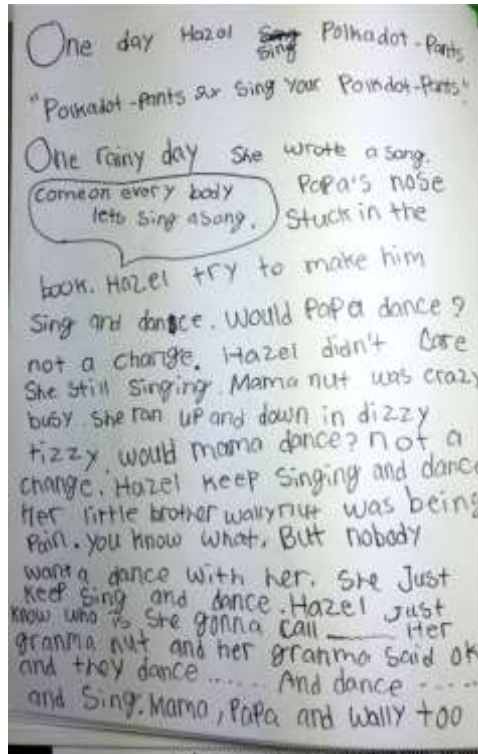 One day Hazel sing Polkadot-Pants
"Polkadot-Pants 2x sing your Polkdot-Pants"
One rainy day she wrote a song.
come on every body
lets sing a song.
Papa's nose
Stuck in the
book. Hazel try to make him
Sing and dance. Would Papa dance?
not a change. Hazel didn't care
She still singing. Mama nut was crazy
busy. she ran up and down in dizzy
tizzy. would mama dance? not a
change. Hazel keep singing and dance
Her little brother wallynut was being
Pain. you know what. But nobody
want a dance with her. She Just
keep sing and dance. Hazel Just
know who is she gonna call ____ Her
granma nut and her granma said ok
and they dance ...... And dance .....
and Sing. Mama, Papa and Wally too